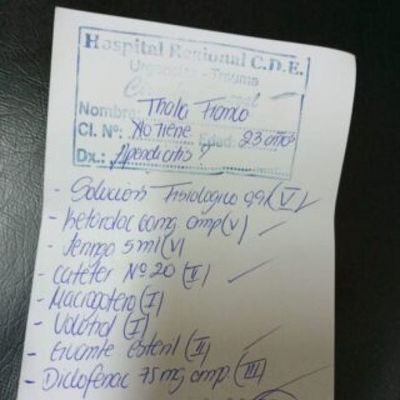 Hospital Regional C.D.E.
Urgencias - Trauma
Nombre: Thalia Franco
CI. Nº: No Tiene Edad: 23 años
Dx.: Apendicitis?
- Solucion Fisiologico 0,9% (V)
- Ketorolac 60mg amp (V)
- Jeringa 5 ml (V)
- Cateter Nº 20 (II)
- Macrogotero (I)
- Volutrol (I)
- Guante Esteril (II)
- Diclofenac 75 mg amp. (III)